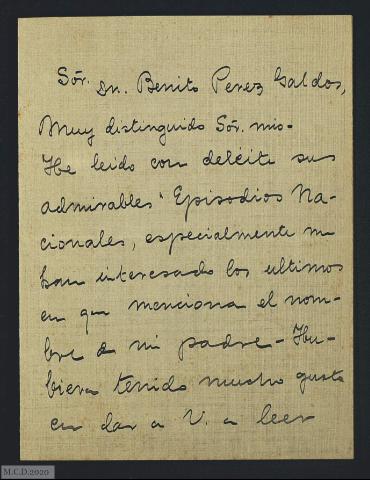 Sõr. Dn. Benito Perez Galdos,
Muy distinguido Sõr. mio-
He leido con deléite sus
admirables "Episodios Na-
cionales, especialmente me
han interesado los ultimos
en que menciona el nom-
bre de mi padre - Hu-
biera tenido mucho gusto
en dar a V. a leer
M.C.D.2020